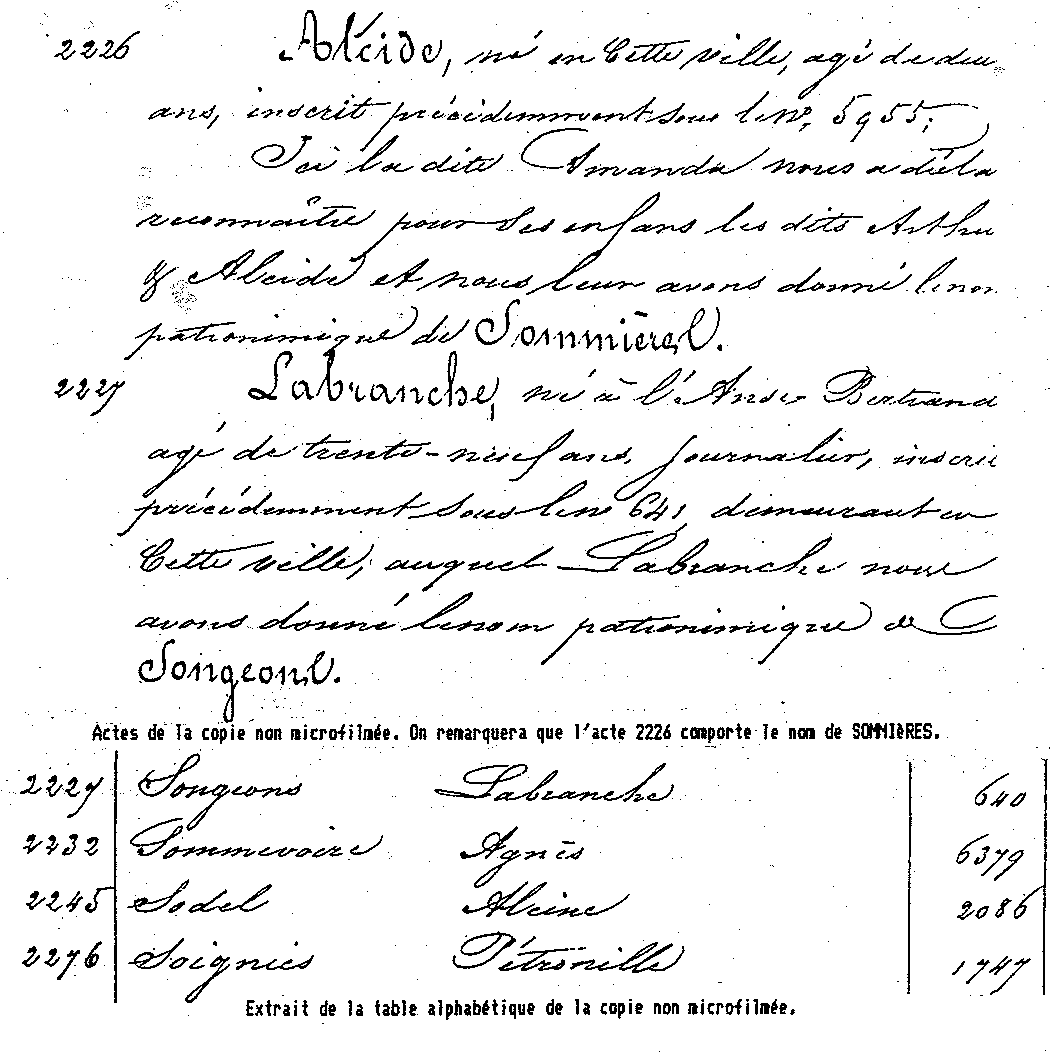 2226 Alcide, né en Cette ville, agé de deu
ans, inscrit précédemment sous le No, 5955;
Ici la dite Amanda nous a décla
reconnaître pour ses enfans les dits Arthu
& Alcide et nous leur avons donné le nom
patronimique de Sommières.
2227 Labranche, né à l'Anse Bertrand
agé de trente-neuf ans, journalier, inscri
précédemment sous le no 641, demeurant en
Cette ville, auquel Labranche nous
avons donné le nom patronimique de
Songeons.
Actes de la copie non microfilmée. On remarquera que l'acte 2226 comporte le nom de SOMMIèRES.
2227 Songeons Labranche 640
2232 Sommevoire Agnès 6379
2245 Sodel Alcine 2086
2276 Soignies Pétronille 1747
Extrait de la table alphabétique de la copie non microfilmée.